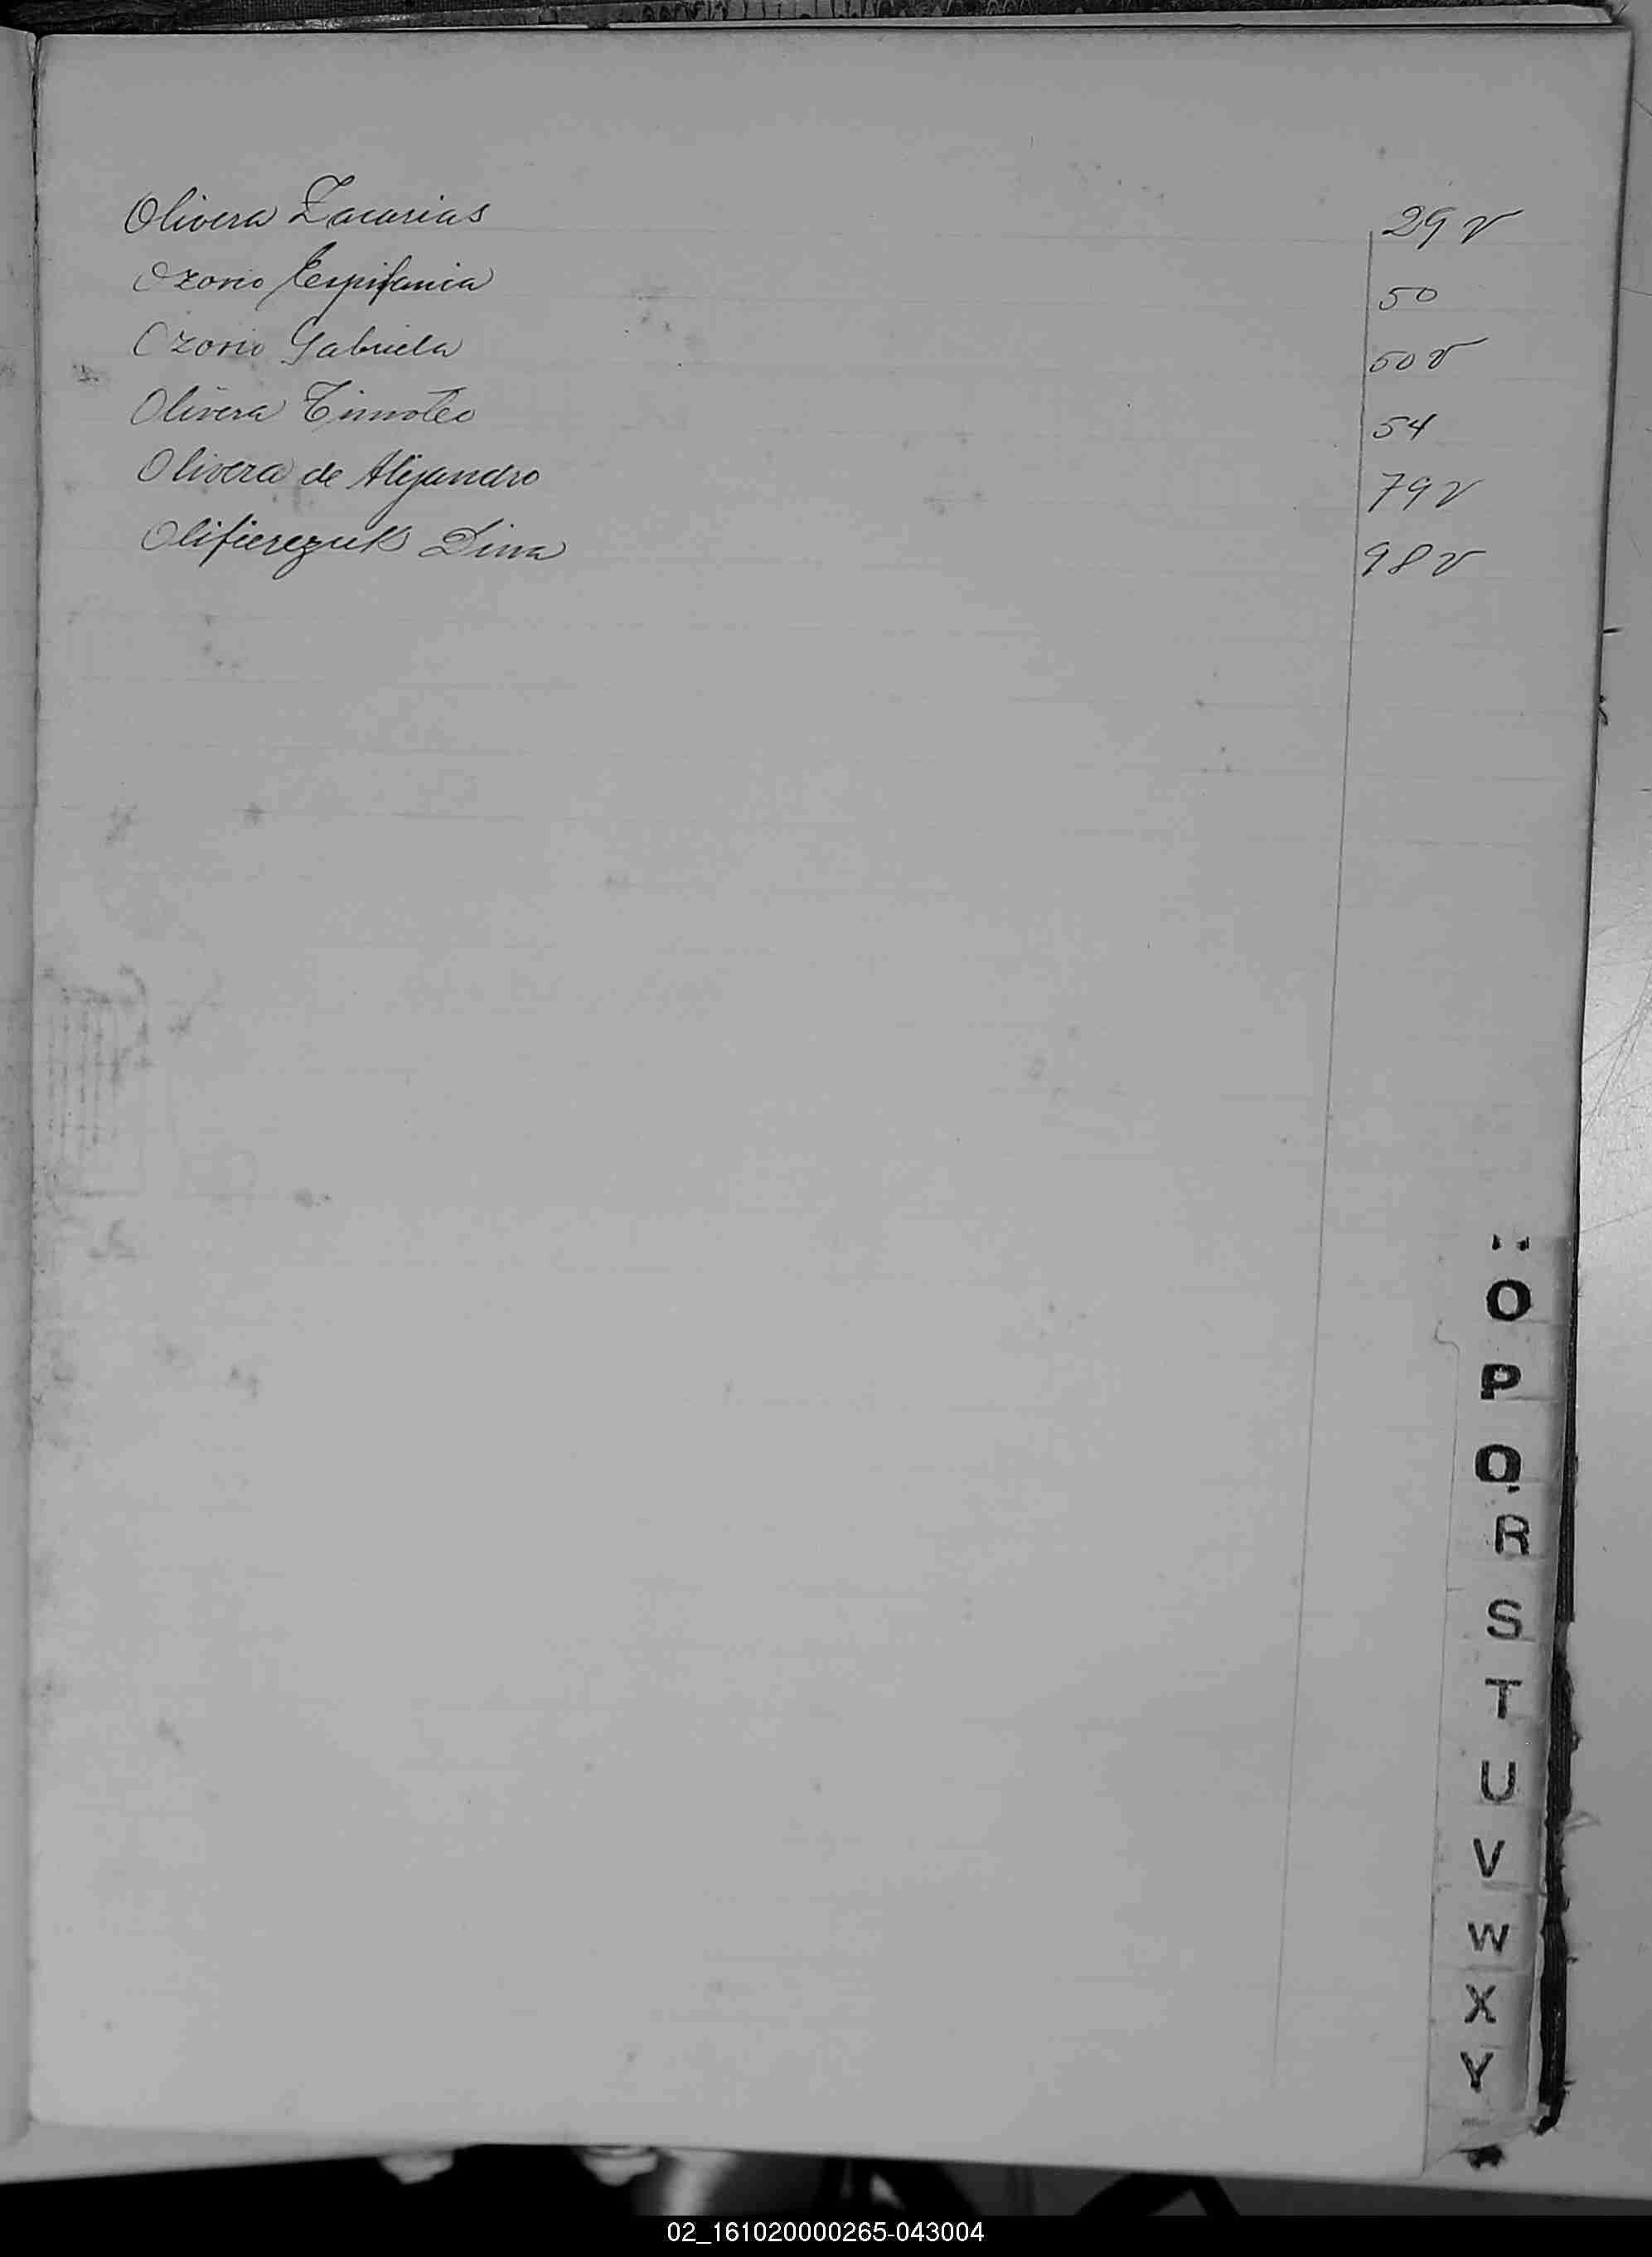 Olivera Zacarias 29 v
Ozorio Espifania 50
Ozorio Gabriela 50 v
Olivera Timoteo 54
Olivera de Alejandro 79 v
Olifierezuk Dina 98 v
Ñ
O
P
Q
R
S
T
U
V
W
X
Y
02_161020000265-043004